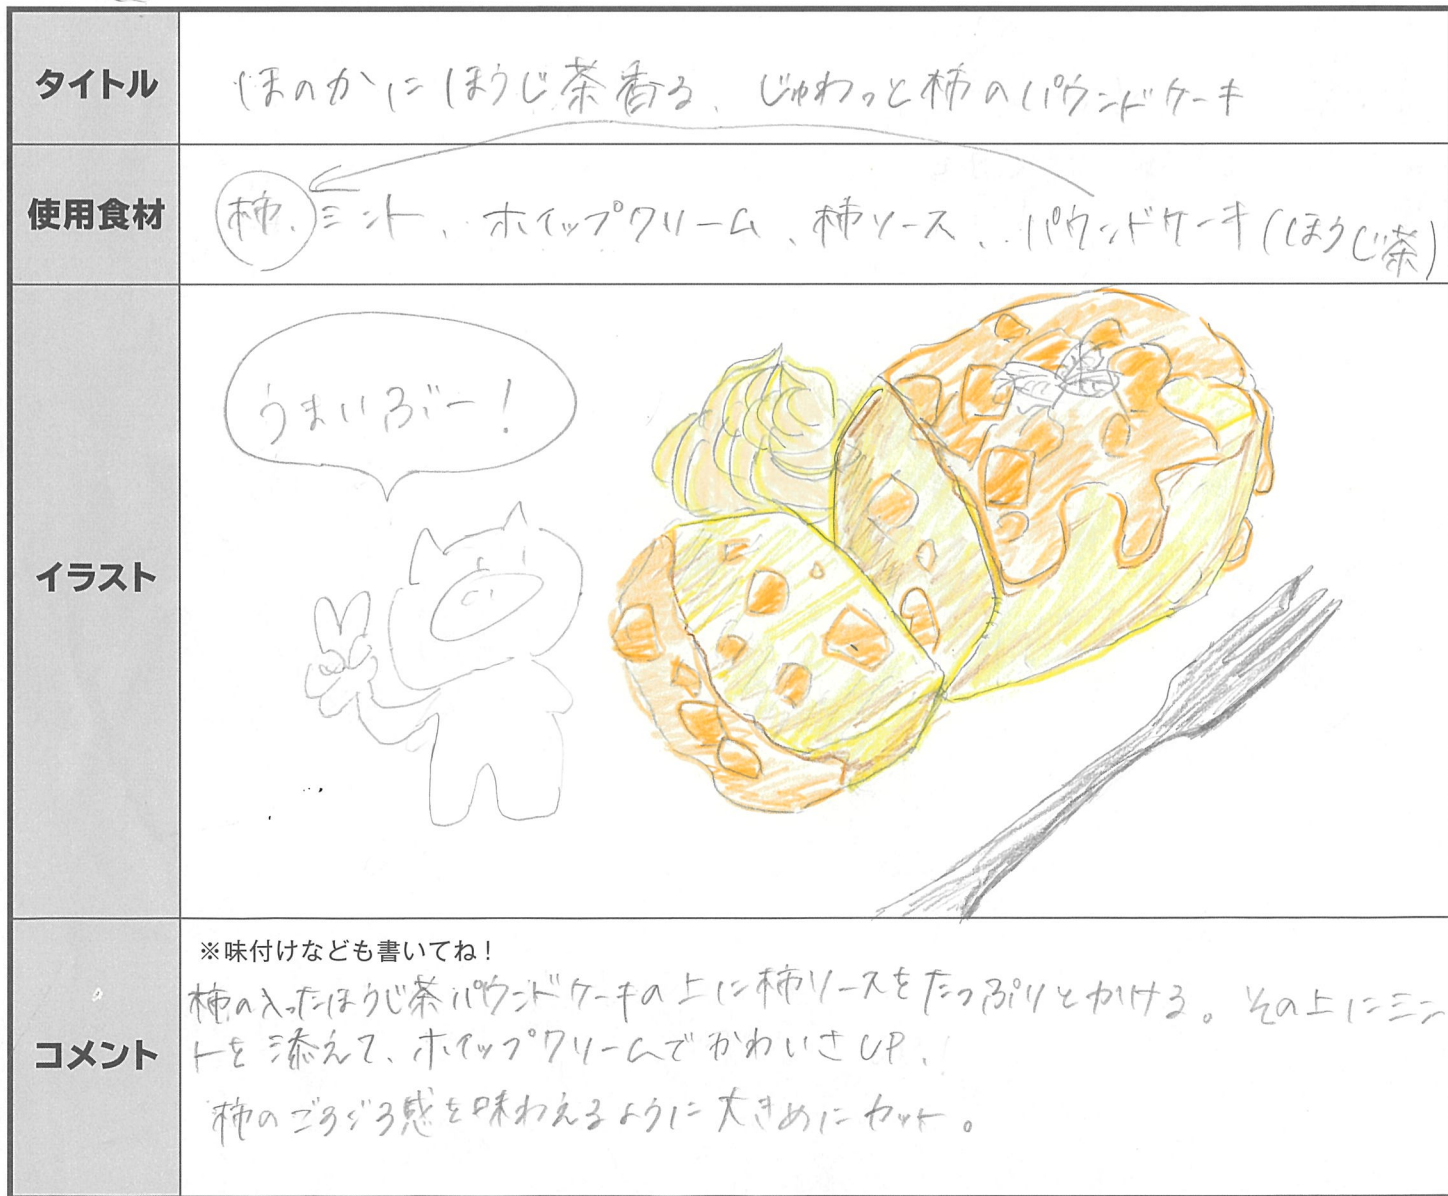 タイトル
ほのかにほうじ茶香る、じゅわっと柿のパウンドケーキ
使用食材
柿、ミント、ホイップクリーム、柿ソース、パウンドケーキ(ほうじ茶)
イラスト
うまいぶー!
コメント
※味付けなども書いてね!
柿の入ったほうじ茶パウンドケーキの上に柿ソースをたっぷりとかける。その上にミン
トを添えて、ホイップクリームでかわいさUP、
柿のごろごろ感を味わえるように大きめにカット。